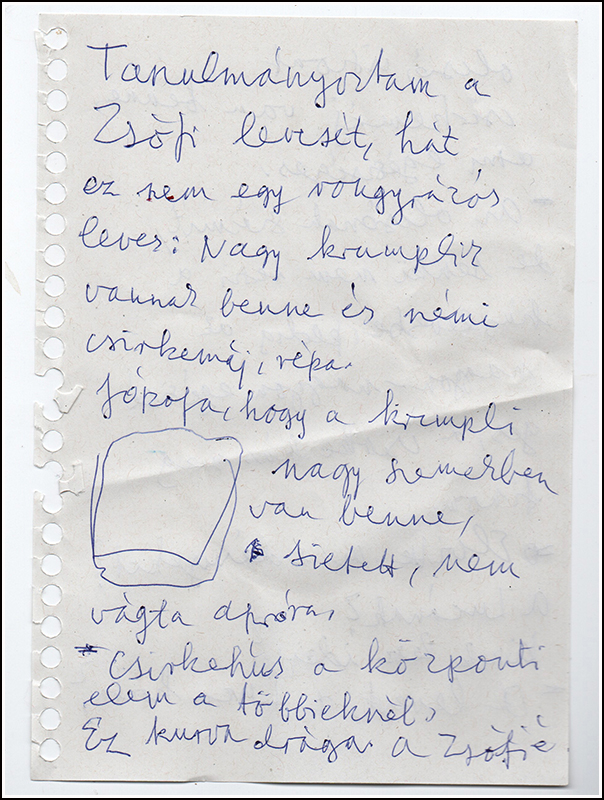 Tanulmányoztam a
Zsòfi levesét, hát
ez nem egy rongyrázós
leves: Nagy krumplik
vannak benne és némi
csirkemáj, répa.
Jópofa, hogy a krumpli
nagy szemekben
van benne,
sietett, nem
vágta apróra.
* Csirkehús a központi
elem a többieknèl.
Ez kurva drága. A Zsòfié